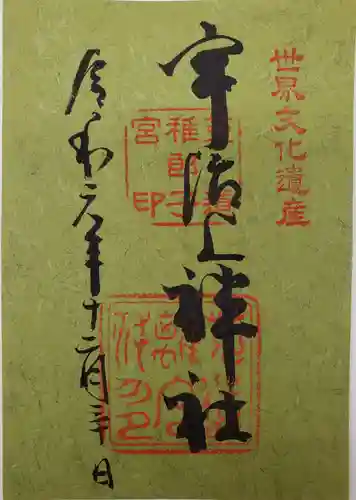 世界文化遺産
宇治上神社
菟道
稚郎子
宮印
令和元年十二月三日